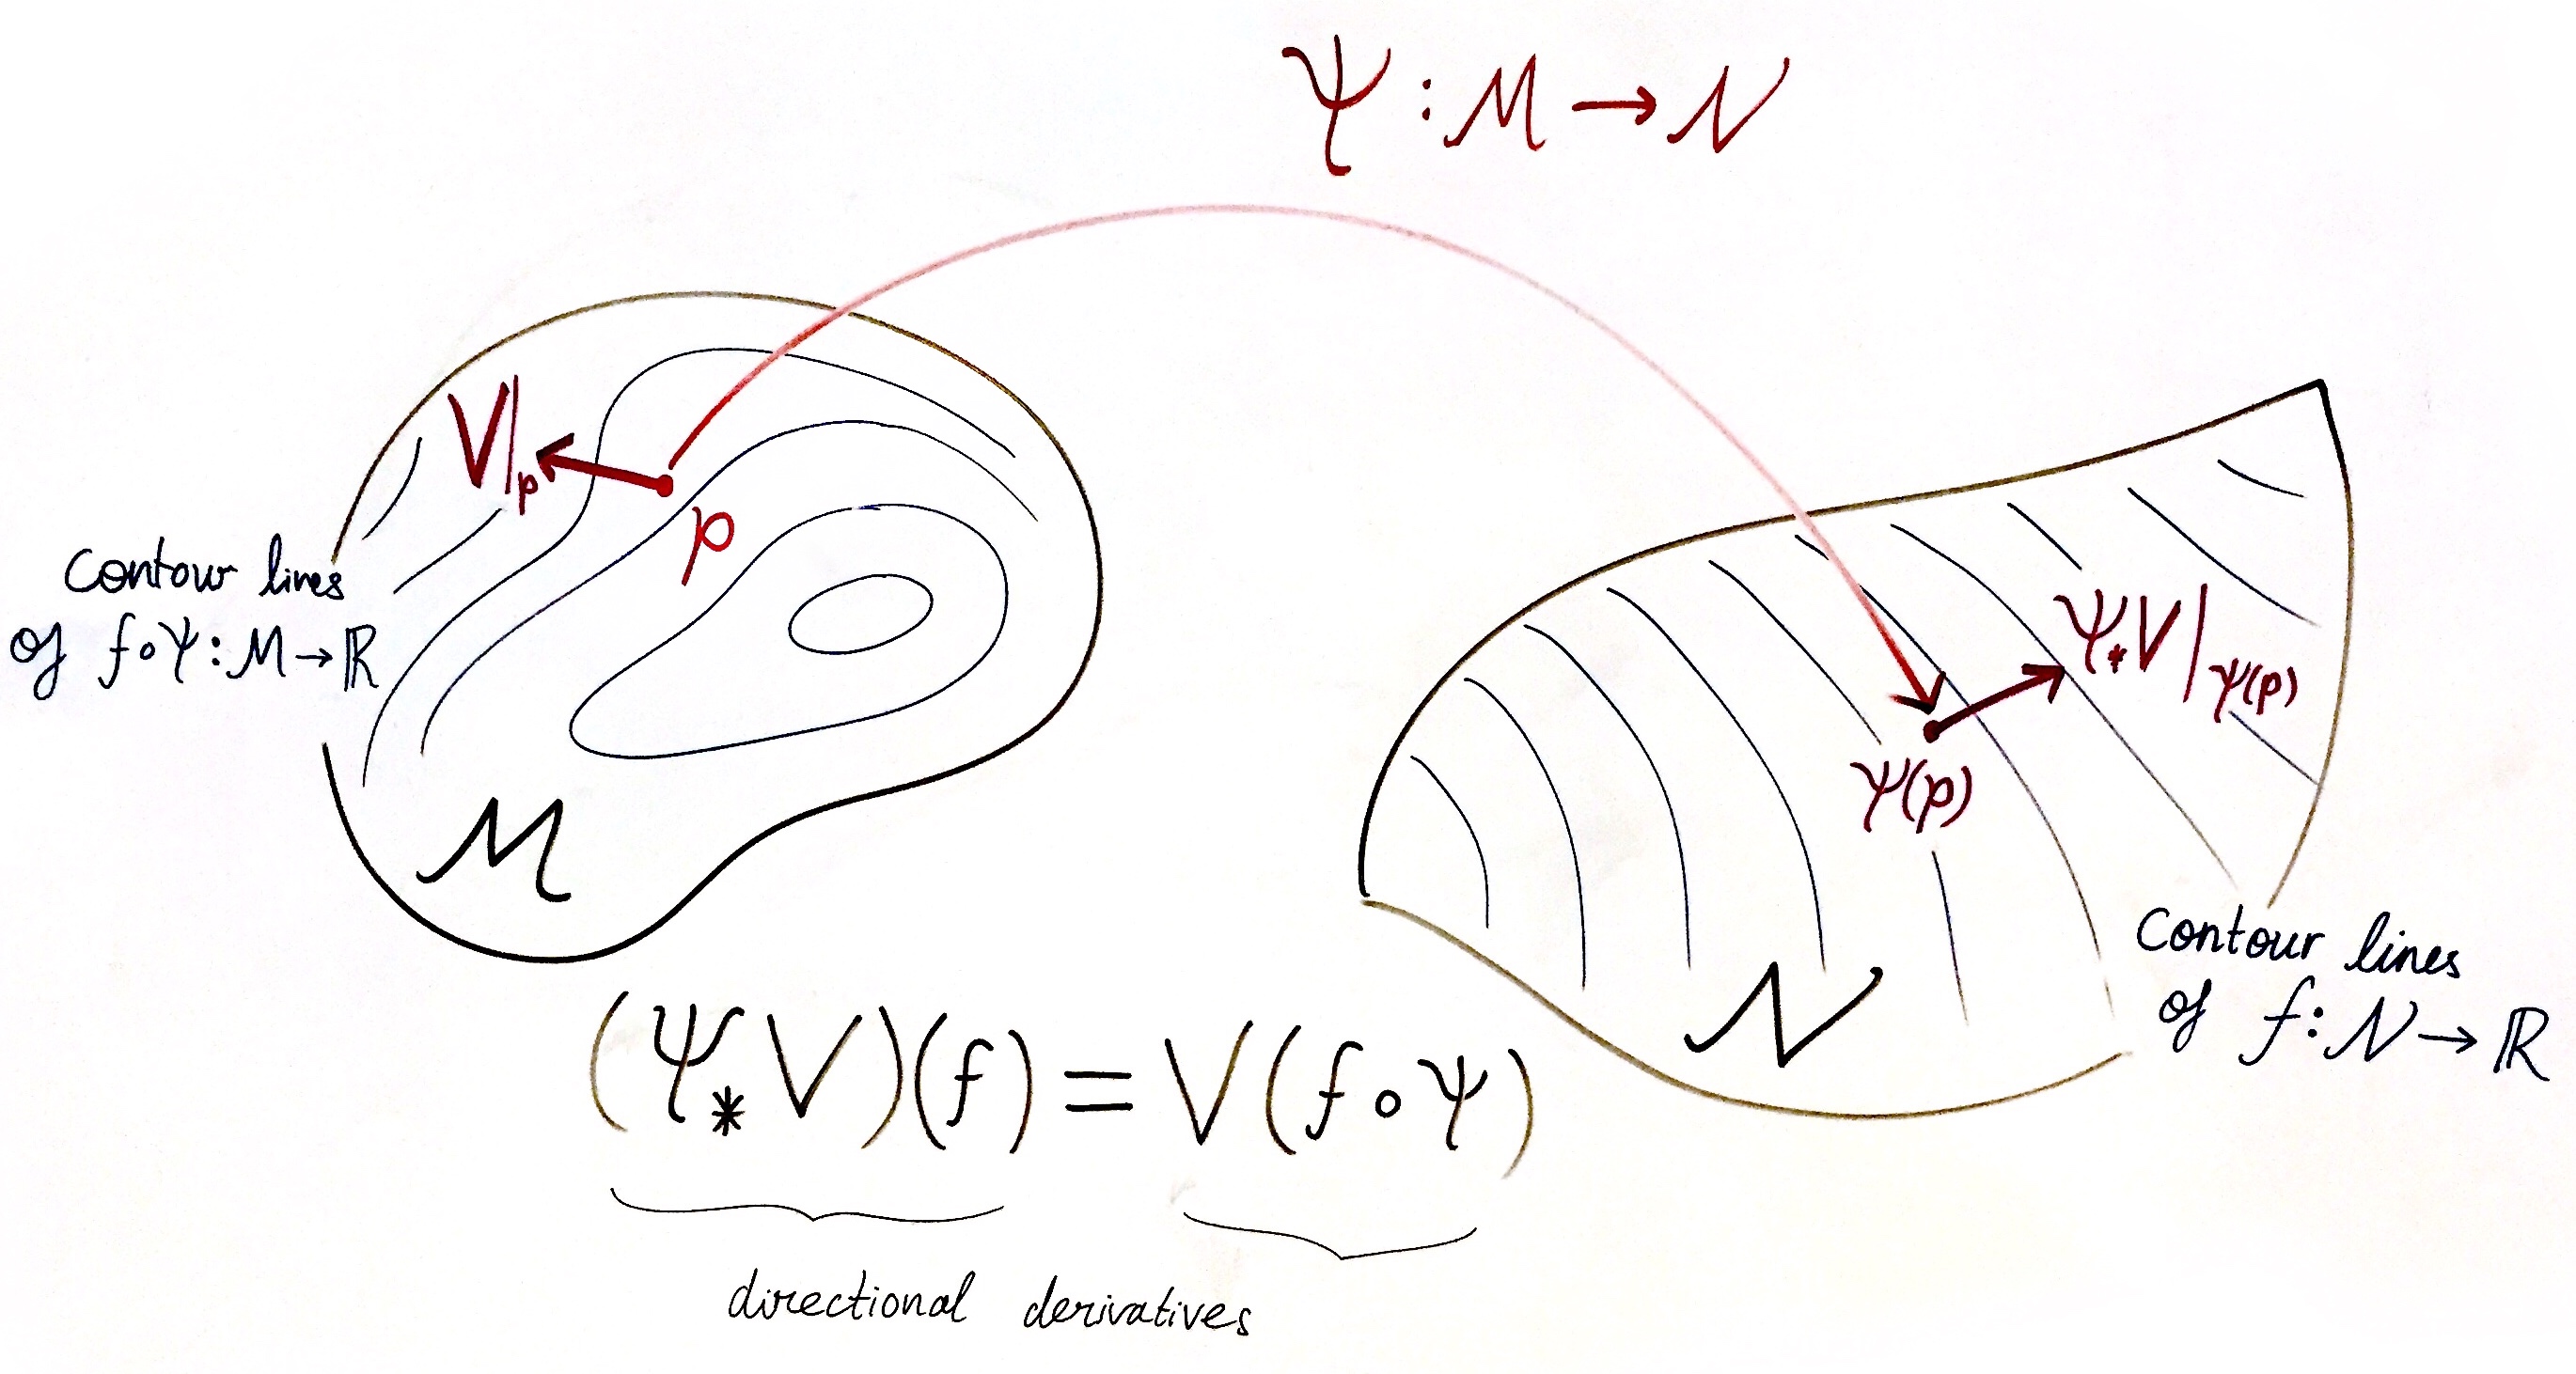 Ψ : M → N
V|p
p
contour lines
of f∘Ψ : M → ℝ
Ψ*V|Ψ(p)
Ψ(p)
M
N
contour lines
of f : N → ℝ
(Ψ*V)(f) = V(f∘Ψ)
directional derivatives